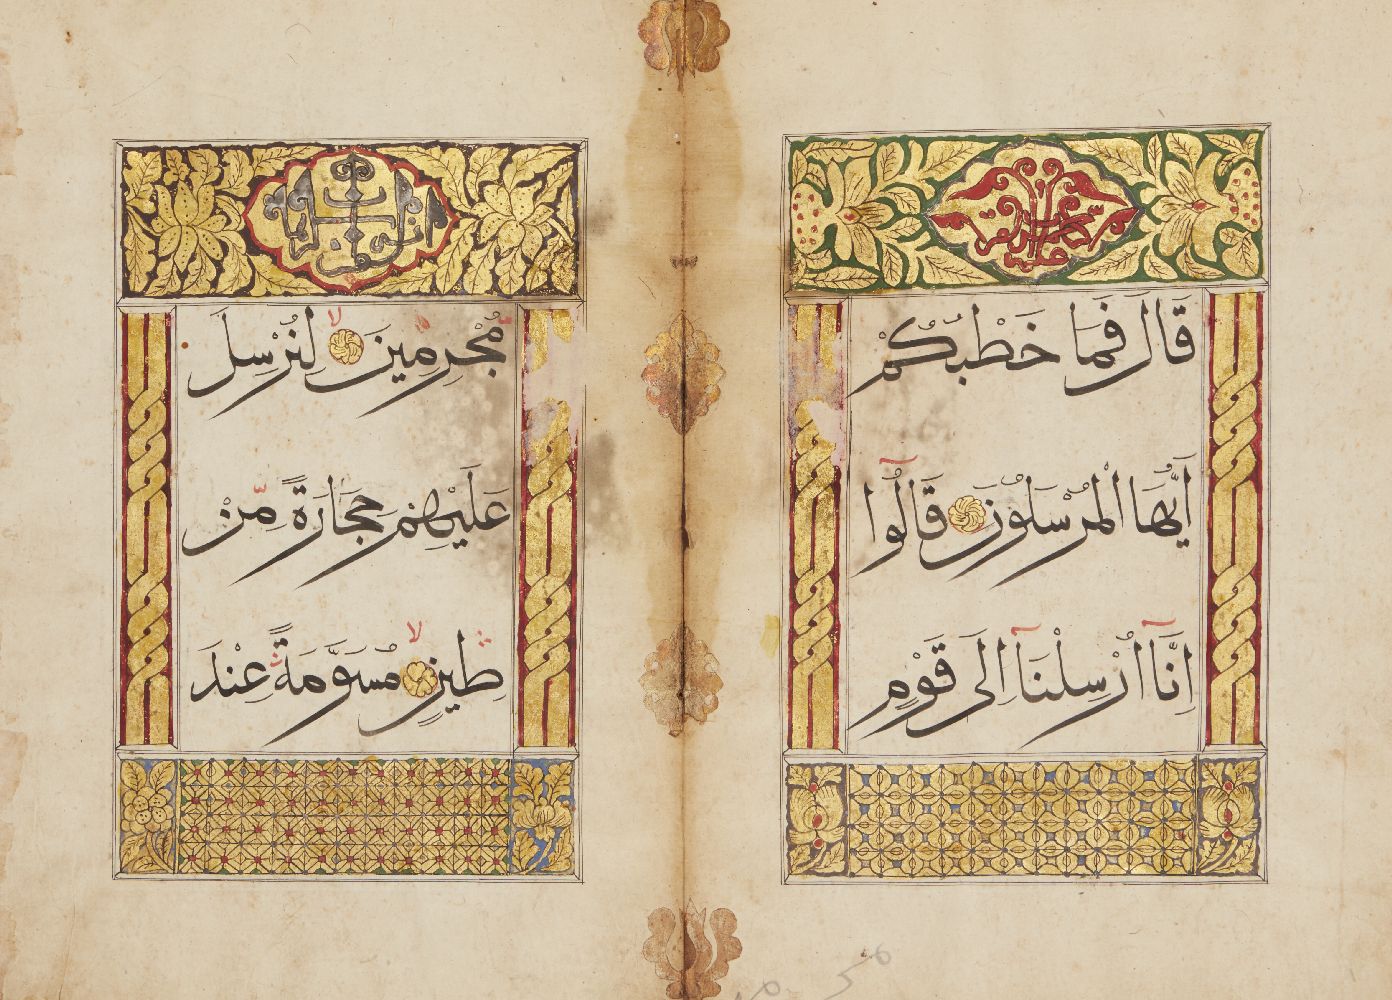 قَالَ فَمَا خَطْبُكُمْ
اَيُّهَا الْمُرْسَلُوْنَ قَالُوا
اِنَّآ اُرْسِلْنَآ اِلَى قَوْمٍ
مُجْرِمِينَ لِنُرْسِلَ
عَلَيْهِمْ حِجَارَةً مِّنْ
طِينٍ مُسَوَّمَةً عِنْدَ